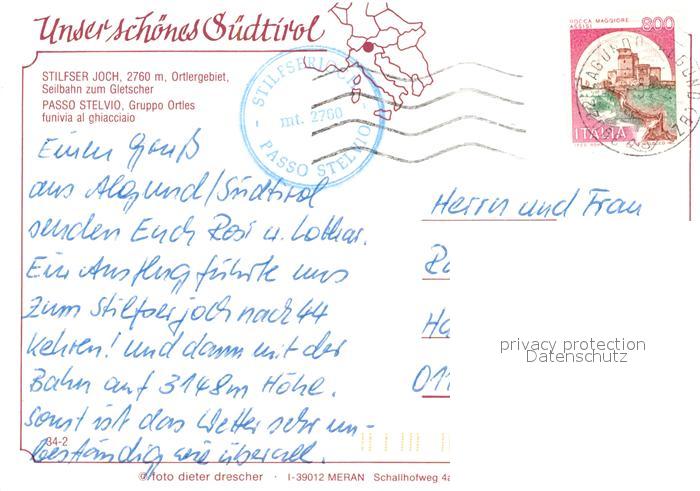 Unser schönes Südtirol
STILFSER JOCH, 2760 m, Ortlergebiet,
Seilbahn zum Gletscher
PASSO STELVIO, Gruppo Ortles
funivia al ghiacciaio
STILFSERJOCH
mt. 2760
PASSO STELVIO
ROCCA MAGGIORE
ASSISI
800
ITALIA
Einen Gruß
aus Algund/Südtirol
senden Euch Rosi u. Lothar.
Ein Ausflug führte uns
zum Stilfserjoch nach 44
Kehren! Und dann mit der
Bahn auf 3148m Höhe.
Sonst ist das Wetter sehr un-
beständig wie überall.
Herrn und Frau
011
privacy protection
Datenschutz
34-2
© foto dieter drescher · I-39012 MERAN Schallhofweg 4a